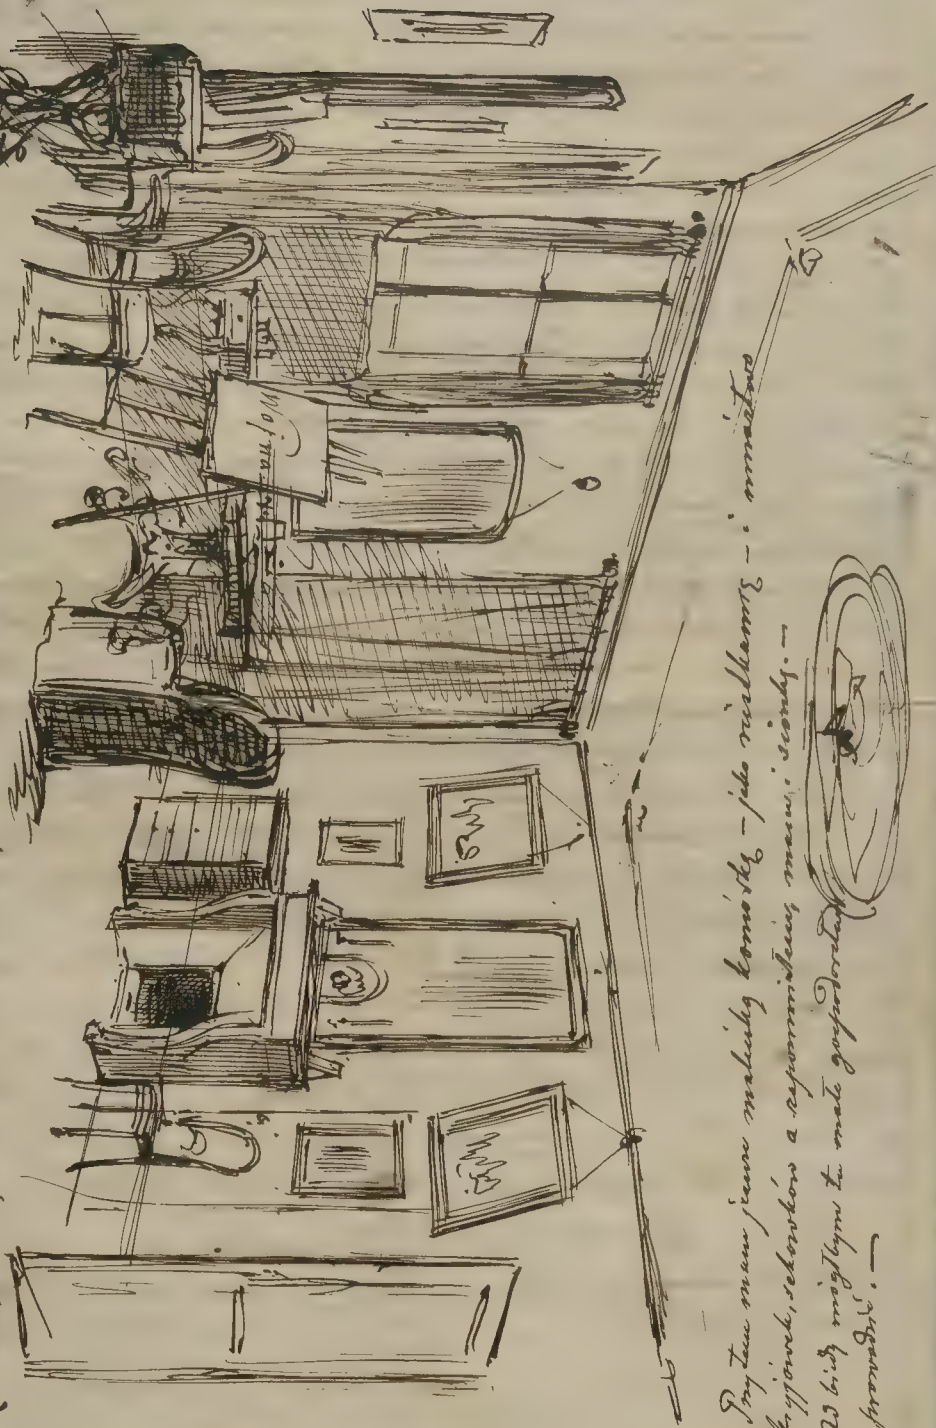 Przytem mam jeszcze maleńką komórkę – jako – i mnóstwo
kryjówek, schowków a zapomniałem mam i sionkę. –
W mógłbym tu małe gospodarstwo
prowadzić. –